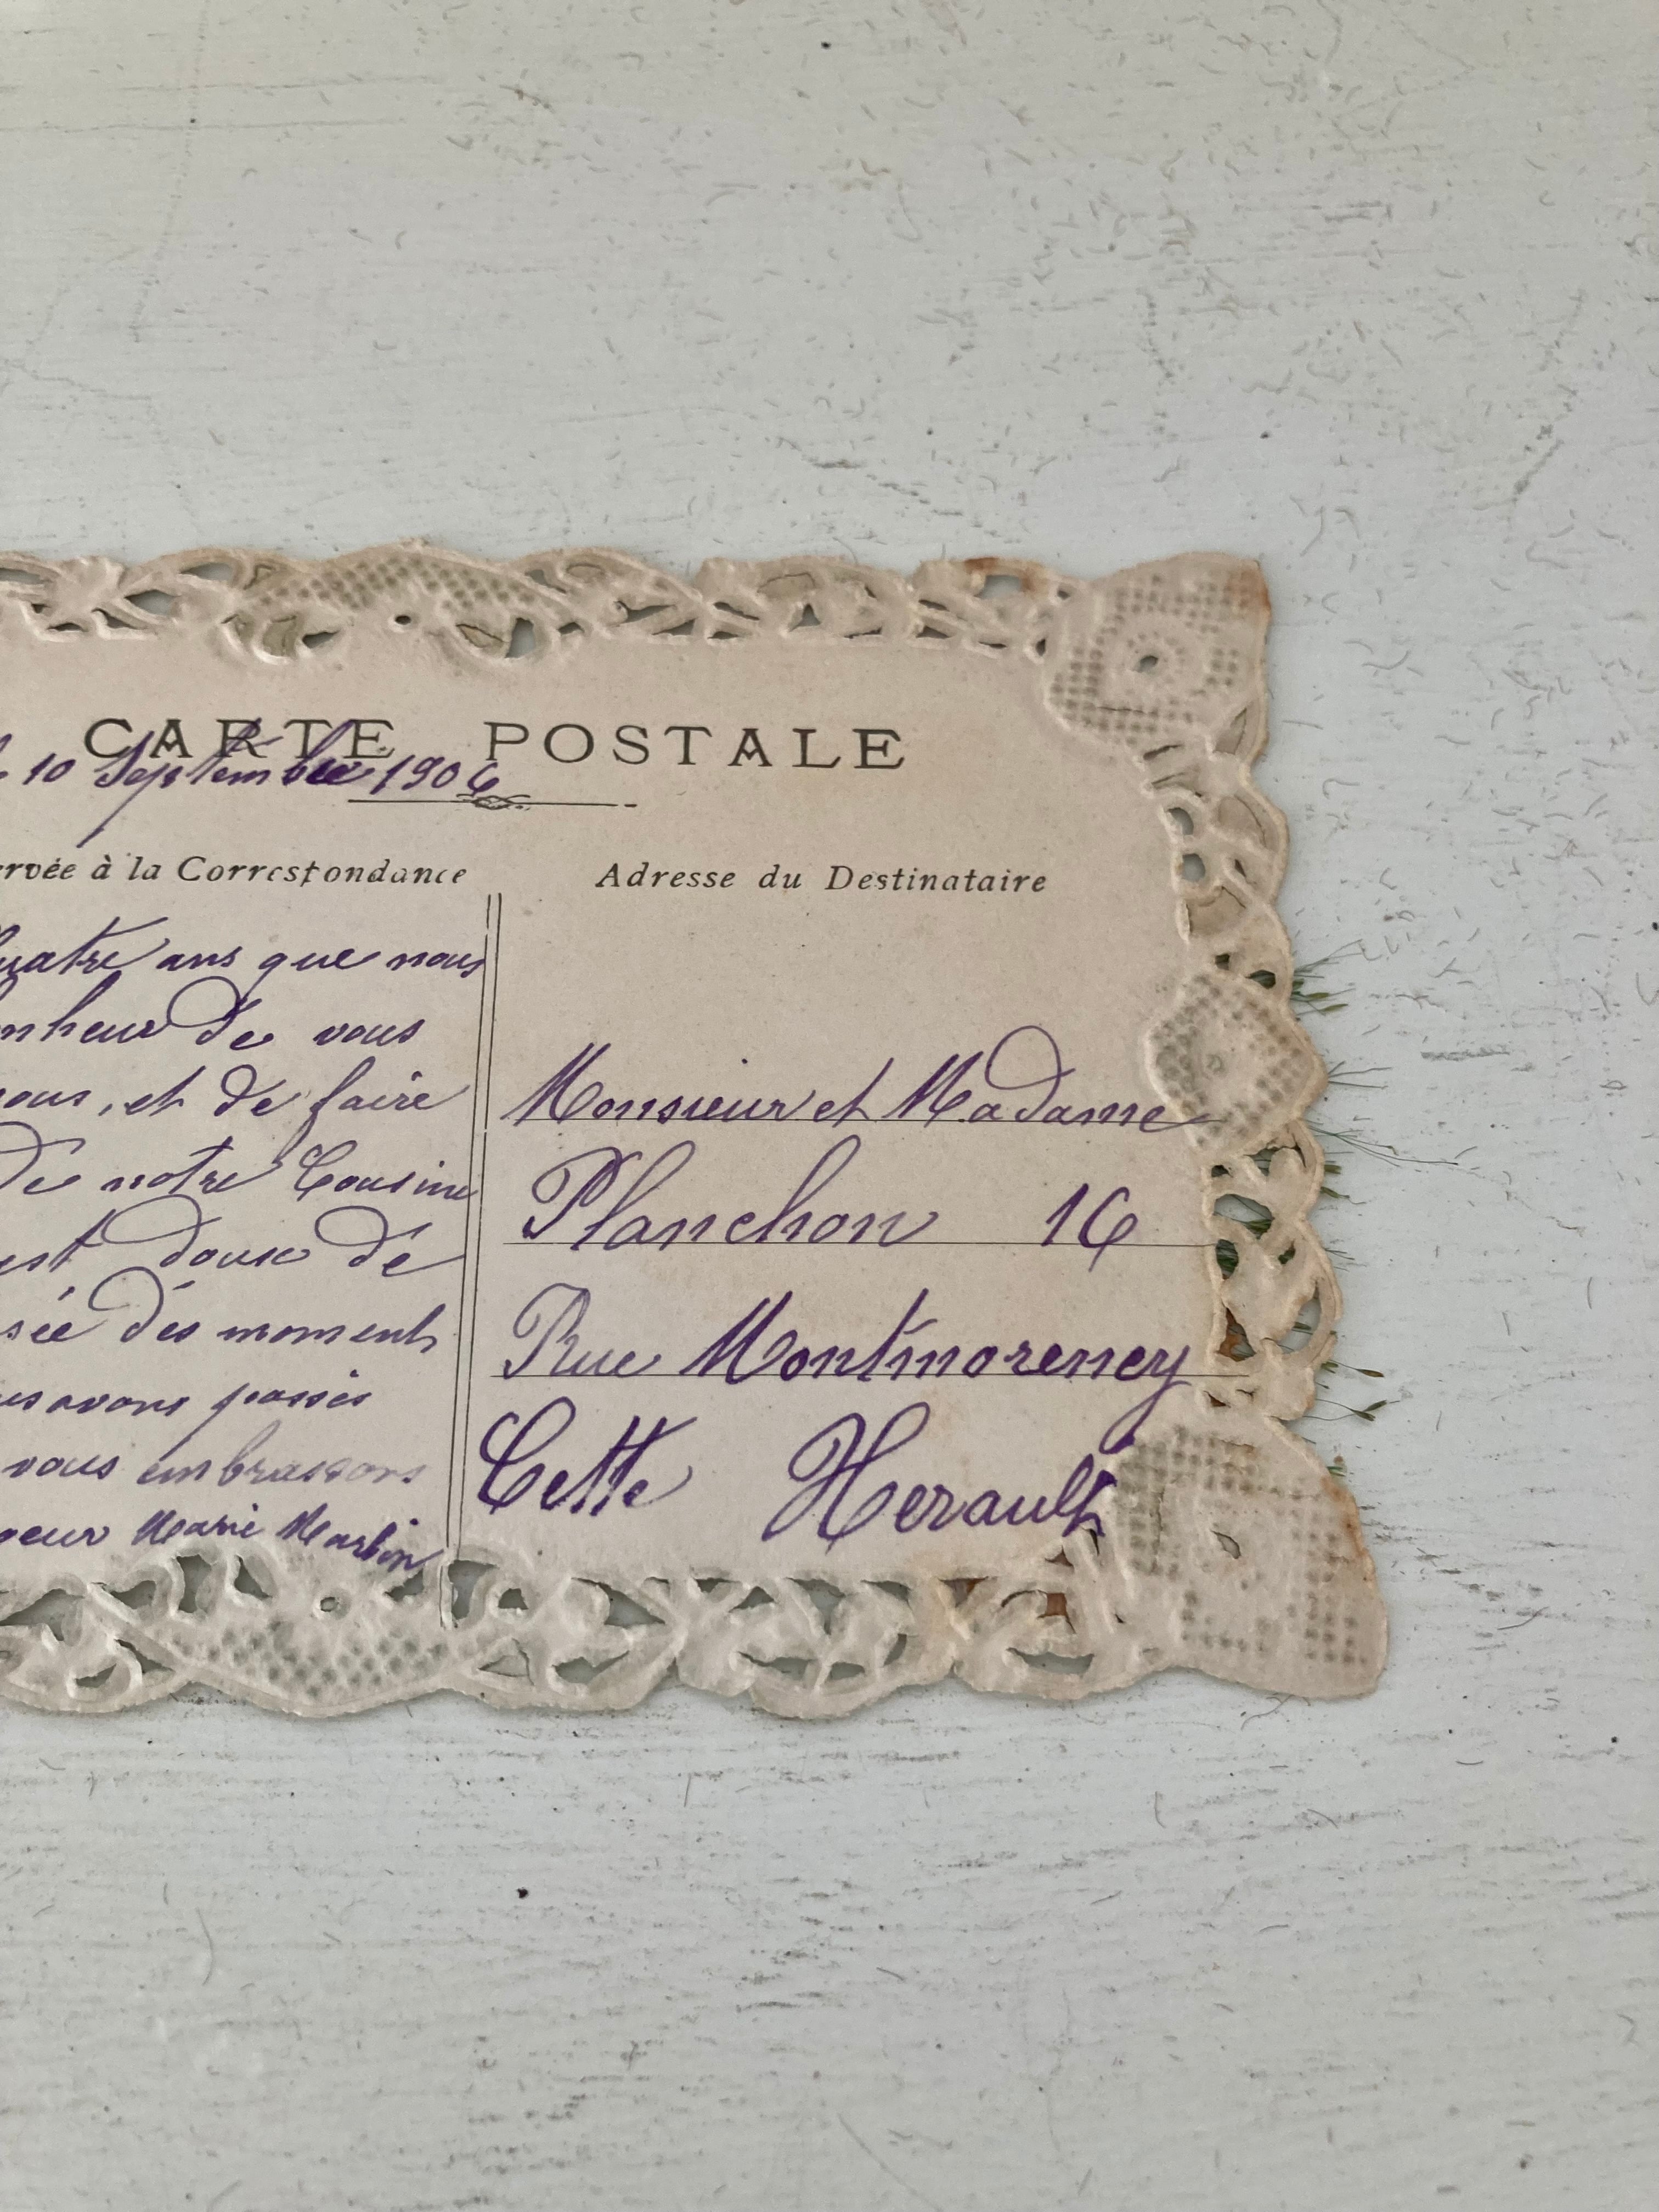 CARTE POSTALE
10 Septembre 1906
rvée à la Correspondance
Adresse du Destinataire
uatre ans que nous
nheur de vous
ous, et de faire
De notre Cousine
est doux de
sée des moments
us avons passés
vous embrassons
oeur Marie Martin
Monsieur et Madame
Planchon 16
Rue Montmorency
Cette Herault